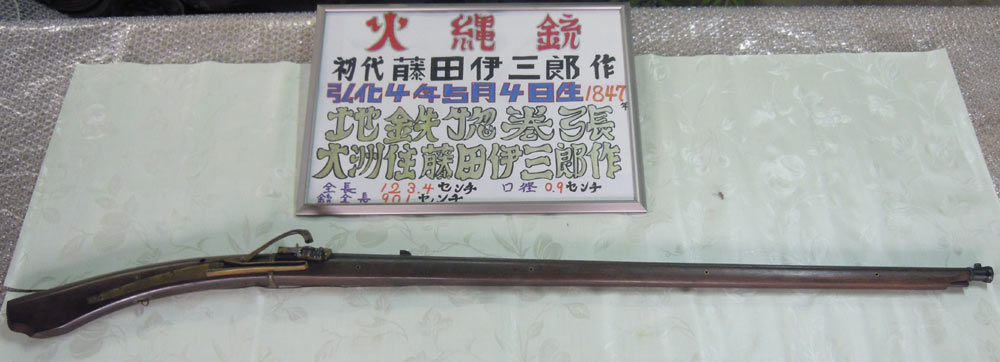 火縄銃
初代藤田伊三郎作
弘化4年5月4日生1847年
地鉄惣巻張
大洲住藤田伊三郎作
全長 123.4センチ 口径 0.9センチ
銃全長 90.1センチ